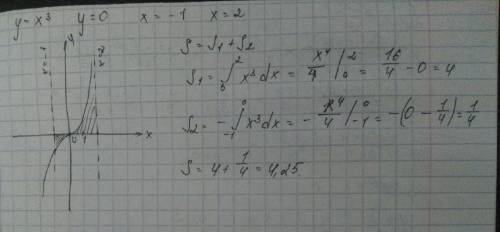 y = x³ y = 0 x = -1 x = 2
S = S₁ + S₂
S₁ = ∫₀² x³ dx = x⁴/4 |₀² = 16/4 - 0 = 4
S₂ = -∫₋₁⁰ x³ dx = - x⁴/4 |₋₁⁰ = -(0 - 1/4) = 1/4
S = 4 + 1/4 = 4,25
y
x = -1
x = 2
0 1
x